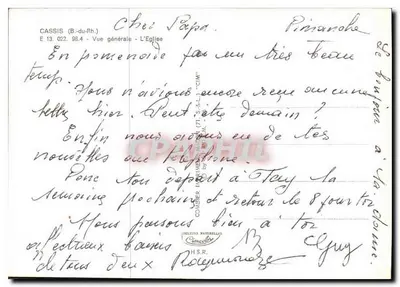 CASSIS (B.-du-Rh.)
E 13. 002. 98.4 - Vue générale - L'Eglise
Cher Papa
Dimanche
En promenade par un très beau
temps. Nous n'avions encore reçu aucune
hier. Peut-être demain ?
Enfin nous avons eu de tes
nouvelles au téléphone.
Donc ton départ à
semaine prochaine et retour le 8 pour toi
Nous pensons bien à toi
affectueux baisers
Guy
de tous deux Raymonde
Le bonjour à la
CPAPHIL
Combier
H.S.R.